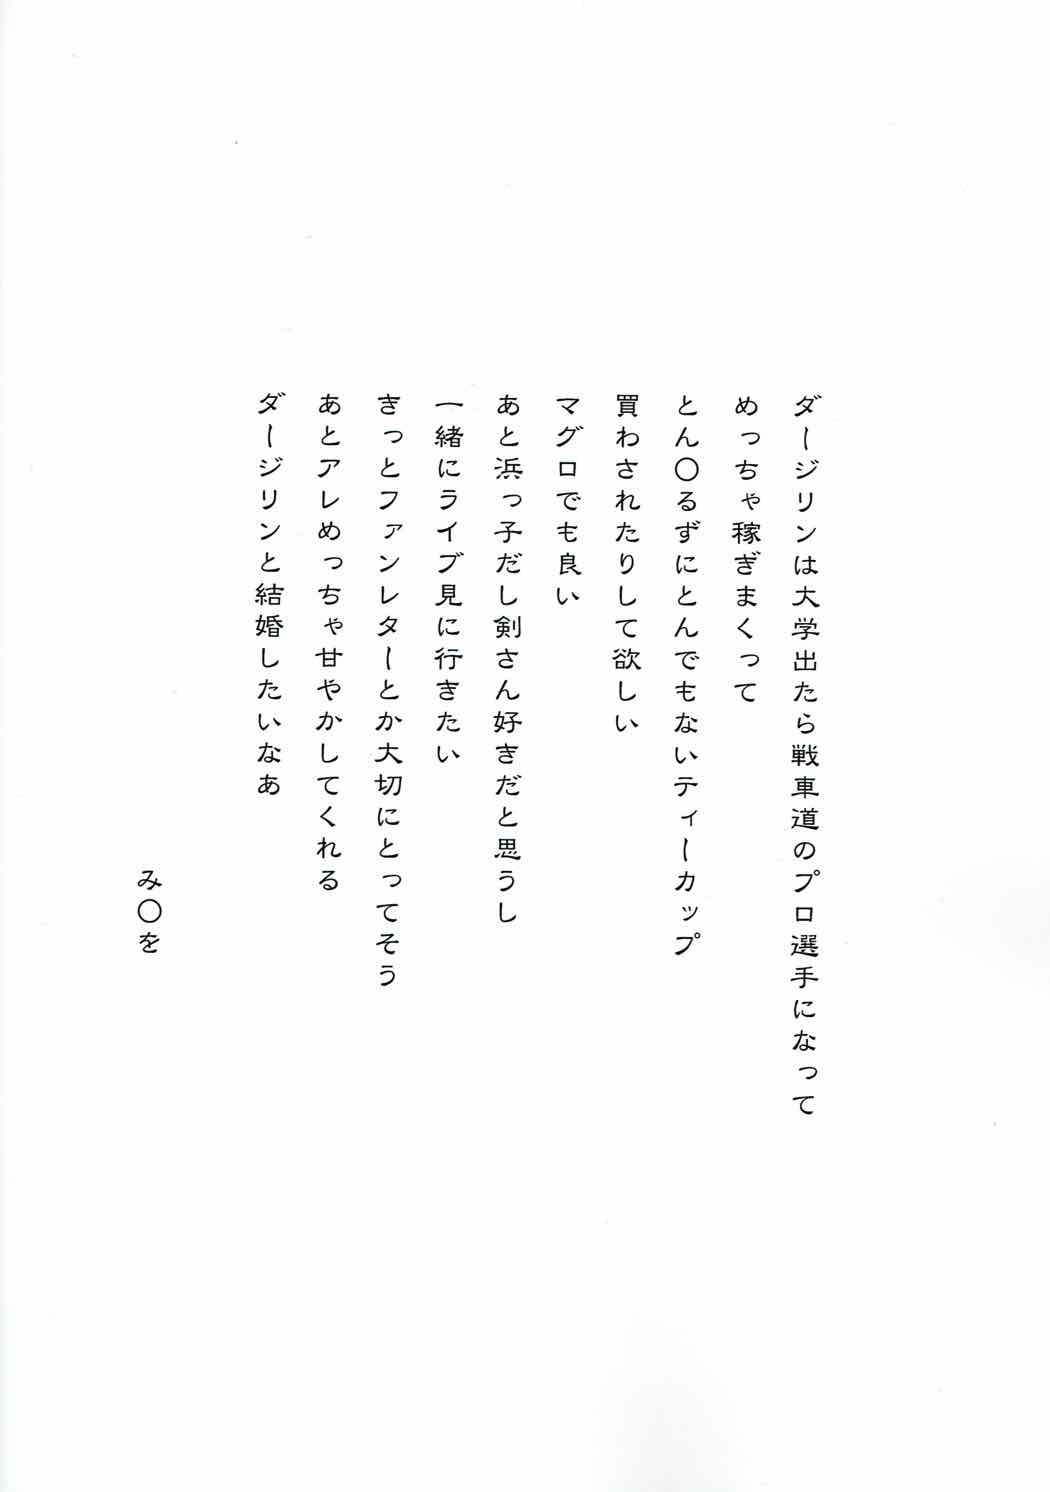 ダージリンは大学出たら戦車道のプロ選手になって
めっちゃ稼ぎまくって
とん〇るずにとんでもないティーカップ
買わされたりして欲しい
マグロでも良い
あと浜っ子だし剣さん好きだと思うし
一緒にライブ見に行きたい
きっとファンレターとか大切にとってそう
あとアレめっちゃ甘やかしてくれる
ダージリンと結婚したいなあ
み〇を